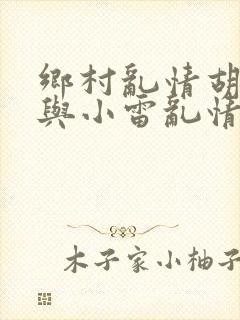 鄉村亂情胡
與小雷亂情
木子家小柚子